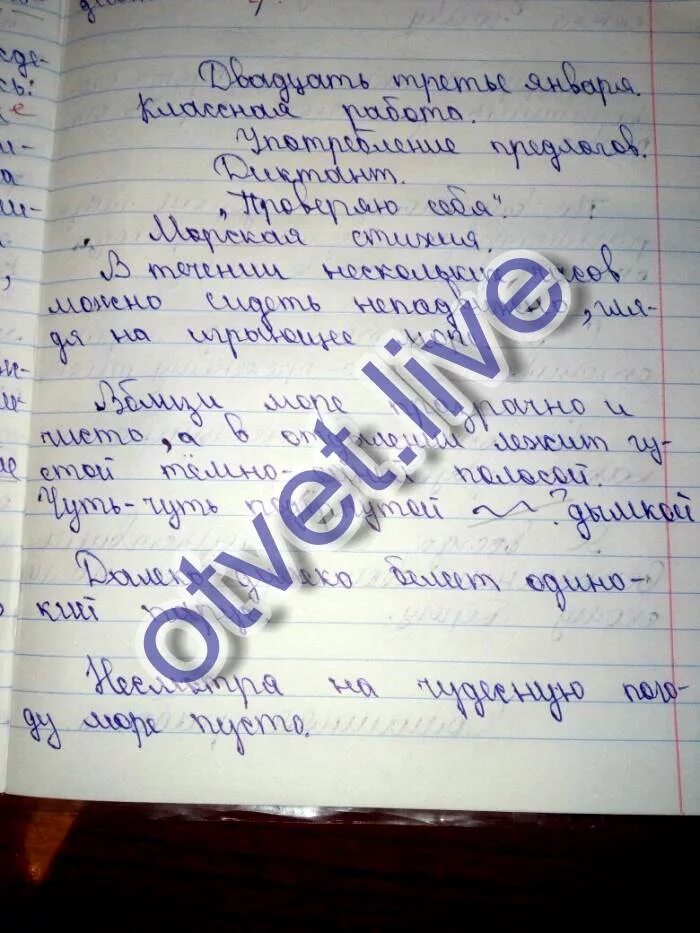 Двадцать третье января.
Классная работа.
Употребление предлогов.
Диктант.
„Проверяю себя“
Морская стихия.
В течении нескольких часов
можно сидеть , гля-
дя на игрующее
Вблизи море и
чисто, а в лежит гу-
стой тёмно- полосой.
Чуть-чуть дымкой
белеет одино-
кий
Несмотря на чудесную пого-
ду море пусто.
otvet.live